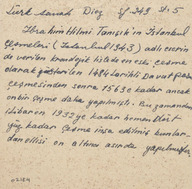 Türk Sanatı Diez sf. 343 st. 5
İbrahim Hilmi Tanışık'ın İstanbul
Çeşmeleri (İstanbul 1943) adlı eserin
de verilen listede en eski çeşme
olarak gösterilen 1484 tarihli Davutpaşa
Çeşmesinden sonra 1563 e kadar ancak
on bir çeşme daha yapılmıştı. Bu zamandan
itibaren 1933 ye kadar hemen
yüz kadar çeşme inşa edilmiş bunlar
dan ellisi on altıncı asırda yapılmıştır